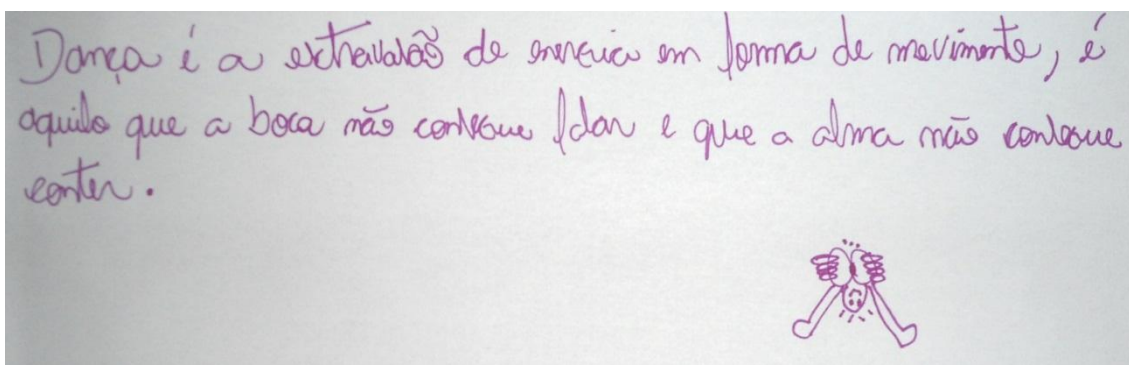 Dança é a extravasão de energia em forma de movimento, é
aquilo que a boca não consegue falar e que a alma não consegue
conter.